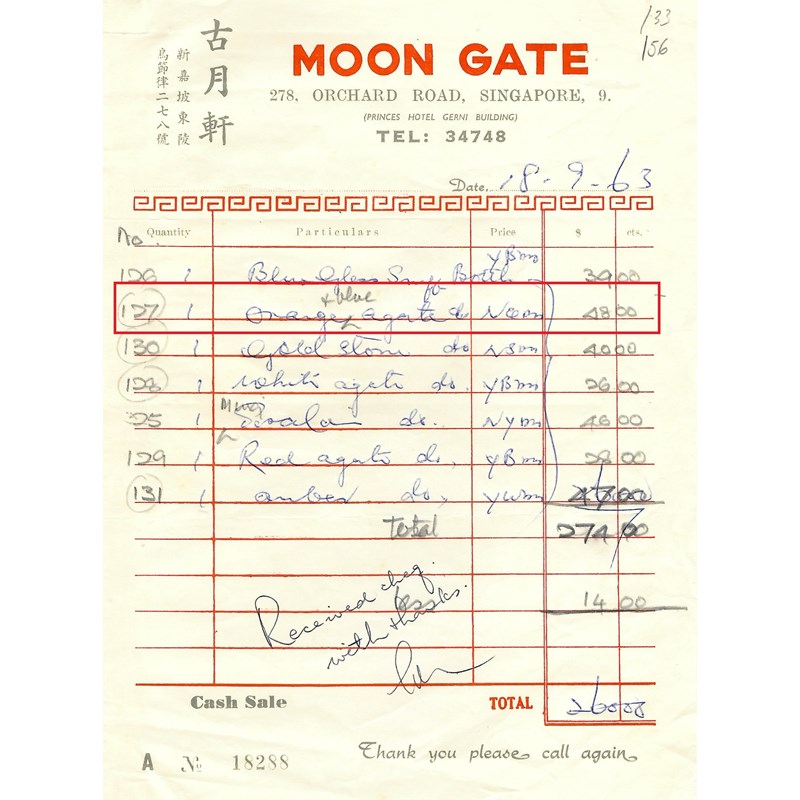 133
156
古月軒
新嘉坡東陵
烏節律二七八號
MOON GATE
278, ORCHARD ROAD, SINGAPORE, 9.
(PRINCES HOTEL GERNI BUILDING)
TEL: 34748
Date. 18-9-63
No. Quantity Particulars Price $ cts.
126 1 Blue Glass Snuff Bottle YBnn 39 00
127 1 orange + blue agate do Noon 48 00
130 1 Gold stone do NSnn 40 00
128 1 white agate do. YBnn 26 00
125 1 do.. NYnn 46 00
129 1 Red agate do, YBnn 28 00
131 1 amber do, YWnn 47 00
Total 274 00
less 14 00
Received cheq.
with thanks.
Cash Sale TOTAL 260 00
A No 18288 Thank you please call again